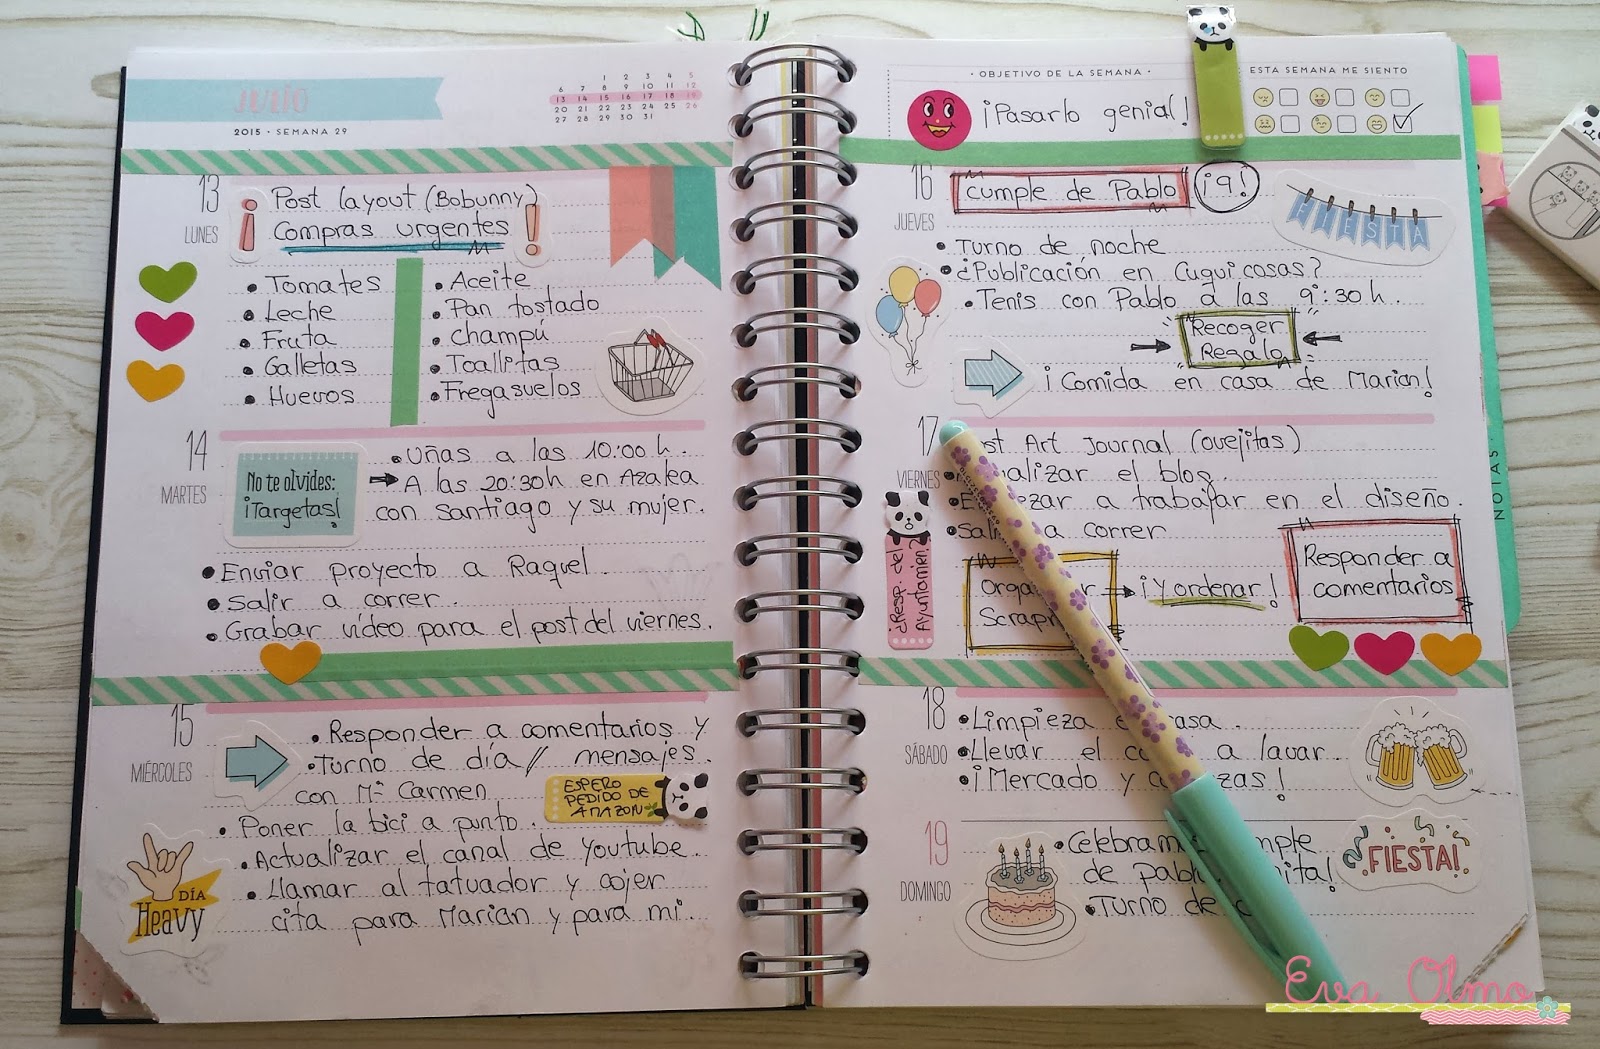 JULIO
2015 · SEMANA 29
1 2 3 4 5
6 7 8 9 10 11 12
13 14 15 16 17 18 19
20 21 22 23 24 25 26
27 28 29 30 31
13
LUNES
¡
Post Layout (Bobunny)
Compras urgentes
!
• Tomates
• Leche
• Fruta
• Galletas
• Huevos
• Aceite
• Pan tostado
• Champú
• Toallitas
• Fregasuelos
14
MARTES
No te olvides:
¡Targetas!
• Uñas a las 10:00 h.
A las 20:30h en Azalea
con Santiago y su mujer.
• Enviar proyecto a Raquel.
• Salir a correr.
• Grabar vídeo para el post del viernes.
15
MIÉRCOLES
• Responder a comentarios y
mensajes.
• Turno de día //
con Mª Carmen
ESPERO
PEDIDO DE
AMAZON
• Poner la bici a punto.
• Actualizar el canal de Youtube.
• Llamar al tatuador y cojer
cita para Marian y para mi.
DÍA
Heavy
· OBJETIVO DE LA SEMANA ·
¡Pasarlo genial!
ESTA SEMANA ME SIENTO
16
JUEVES
Cumple de Pablo
¡9!
FIESTA
• Turno de noche
• ¿Publicación en Cuquicosas?
• Tenis con Pablo a las 9:30 h.
Recoger
Regalo
¡Comida en casa de Marian!
17
VIERNES
st Art Journal (ovejitas)
alizar el blog.
ezar a trabajar en el diseño.
• Sali a correr
¿Resp. del
Ayuntamien.?
Orga r
Scrap
¡Y ordenar!
Responder a
comentarios
NOTAS
18
SÁBADO
• Limpieza casa.
• Llevar el a lavar.
• ¡Mercado y zas!
19
DOMINGO
• Celebram mple
de Pabl ita!
• Turno de
¡FIESTA!
Eva Olmo